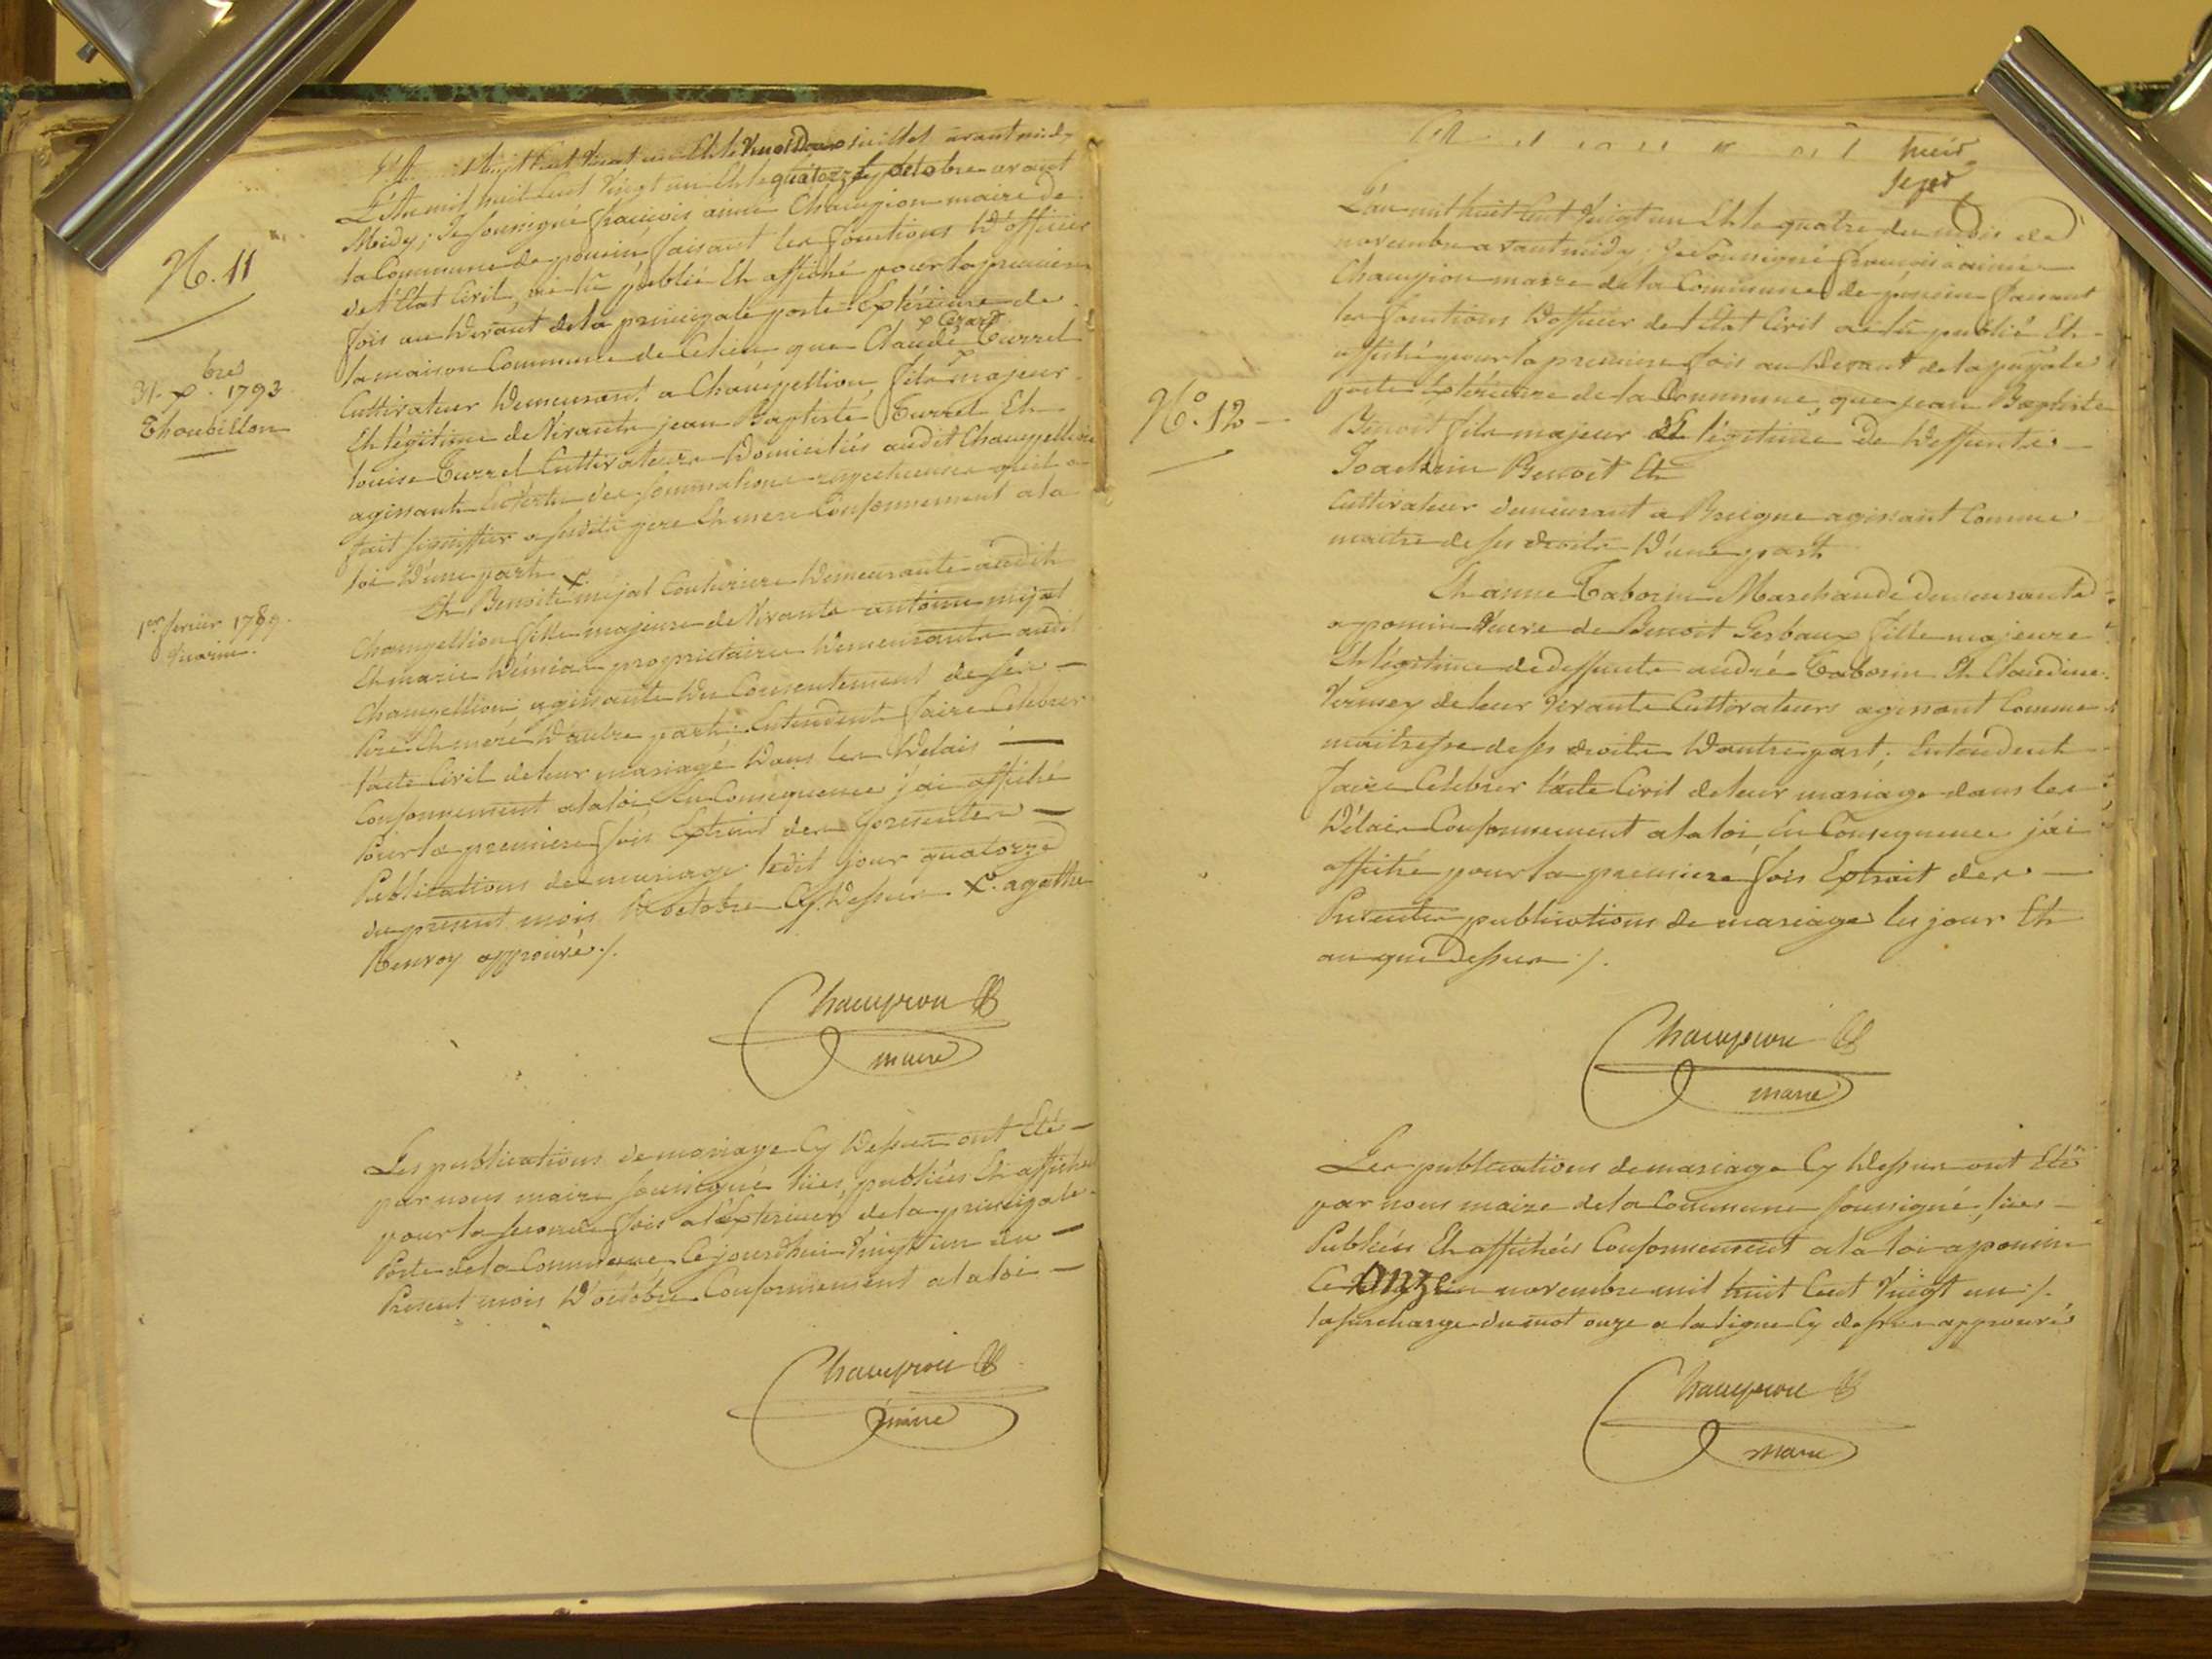 N. 11
31. xbre 1793.
Thoubillon
1er fevrier 1789.
L'An mil huit Cent Vingt un Et le quatorze octobre avant
Midy; Je soussigné francois aimé Champion maire de
la Commune de poncin faisant les fonctions D'officier
de l'Etat Civil, ai lû publié Et affiché pour la premiere
fois au Devant de la principale porte Extérieure de
la maison Commune de Ce lieu que Claude Turrel
Cultivateur Demeurant a Champellion fils majeur
Et légitime de Vivants jean Baptiste Turrel Et
louise Turrel Cultivateurs Domiciliés audit Champellion
agissant En Vertu des sommations respectueuses qu'il a
fait signiffier a sesdits pere Et mere Conformement a la
loi D'une part
Et Benoite x mijat Couturiere Demeurante audit
Champellion fille majeure de Vivants antoine mijat
Et marie proprietaires Demeurants audit
Champellion agissante Du Consentement de ses
Pere Et mere D'autre part. Entendent faire Celebrer
l'acte Civil de leur mariage Dans les Delais
Conformement a la loi En Consequence j'ai affiché
Pour la premiere fois Extrait des presentes
Publications de mariage ledit jour quatorze
du present mois D'octobre Cy Dessus. x. agathe
Renvoy approuvé ./.
Champion
maire
Les publications de mariage Cy Dessus ont Eté
par nous maire soussigné lües, publiées Et affichées
pour la seconde fois a l'Exterieur de la principale
Porte de la Commune Ce jourd'hui Vingt un du
Present mois D'octobre Conformement a la loi
Champion
maire
N°. 12
L'an mil huit Cent Vingt un Et le quatre du mois de
novembre avant midy; Je Soussigné francois aimé
Champion maire de la Commune de poncin faisant
les fonctions D'officier de l'Etat Civil ai lû publié Et
affiché pour la premiere fois au Devant de la
porte Exterieure de la Commune, que jean Baptiste
Benoit fils majeur Et légitime De Deffunts
Joachim Benoit Et
Cultivateur demeurant a agissant Comme
maitre de ses droits D'une part
Et anne Taborin Marchande demeurante
a poncin Veuve de Benoit Gerbaux fille majeure
Et légitime de deffunts andré Taborin Et Claudine
de leur Vivants Cultivateurs agissant Comme
maitresse de ses droits D'autre part; Entendent
faire Celebrer l'acte Civil de leur mariage dans les
Délais Conformement a la loi, En Consequence j'ai
affiché pour la premiere fois Extrait des
Presentes publications de mariage les jour Et
an que Dessus ./.
Champion
maire
Les publications de mariage Cy Dessus ont Eté
par nous maire de la Commune soussigné, lües
Publiées Et affichées Conformement a la loi a poncin
Ce onze novembre mil huit Cent Vingt un ./.
la surcharge du mot onze a la ligne Cy dessus approuvé
Champion
maire